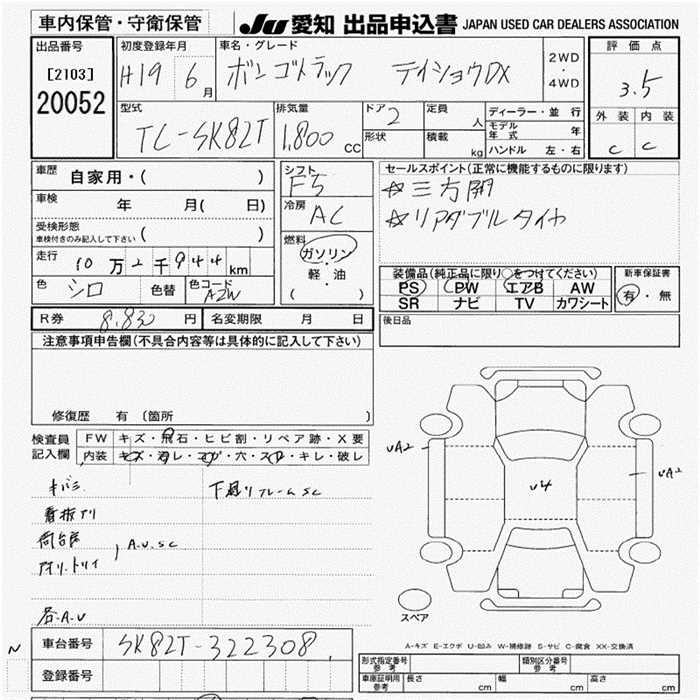 車内保管・守衛保管
JU 愛知 出品申込書 JAPAN USED CAR DEALERS ASSOCIATION
出品番号
[2103]
20052
初度登録年月
H19 6月
車名・グレード
ボンゴトラック デイショウDX
2WD
・
4WD
評価点
3.5
外装 内装
C C
型式
TC-SK82T
排気量
1,800 cc
ドア
2
形状
定員
人
積載
kg
ディーラー・並行
モデル年式 年
ハンドル 左・右
車歴
自家用・( )
車検 年 月( 日)
受検形態
車検付きのみ記入して下さい ( )
走行
10万2千944km
色 シロ 色替 色コード A2W
シフト
F5
冷房
AC
燃料
ガソリン
・
軽・油
( )
セールスポイント(正常に機能するものに限ります)
☆三方開
☆リアダブルタイヤ
装備品(純正品に限り○をつけてください)
PS PW エアB AW
SR ナビ TV カワシート
新車保証書
有・無
R券 8,830円 名変期限 月 日
後日品
注意事項申告欄(不具合内容等は具体的に記入して下さい)
修復歴 有 〔箇所 〕
検査員記入欄
FW キズ・飛石・ヒビ割・リペア跡・X要
内装 キズ・汚レ・コゲ・穴・スレ・キレ・破レ
キバミ
下廻りフレームSC
看板アリ
荷台
A.U.SC
アオリ・トリイ
各A.U
UA2
U4
UA2
スペア
A-キズ E-エクボ U-凹み W-補修跡 S-サビ C-腐食 XX-交換済
N
車台番号 SK82T-322308
登録番号
形式指定番号 参考
類別区分番号 参考
車庫証明用 参考 長さ cm 幅 cm 高さ cm